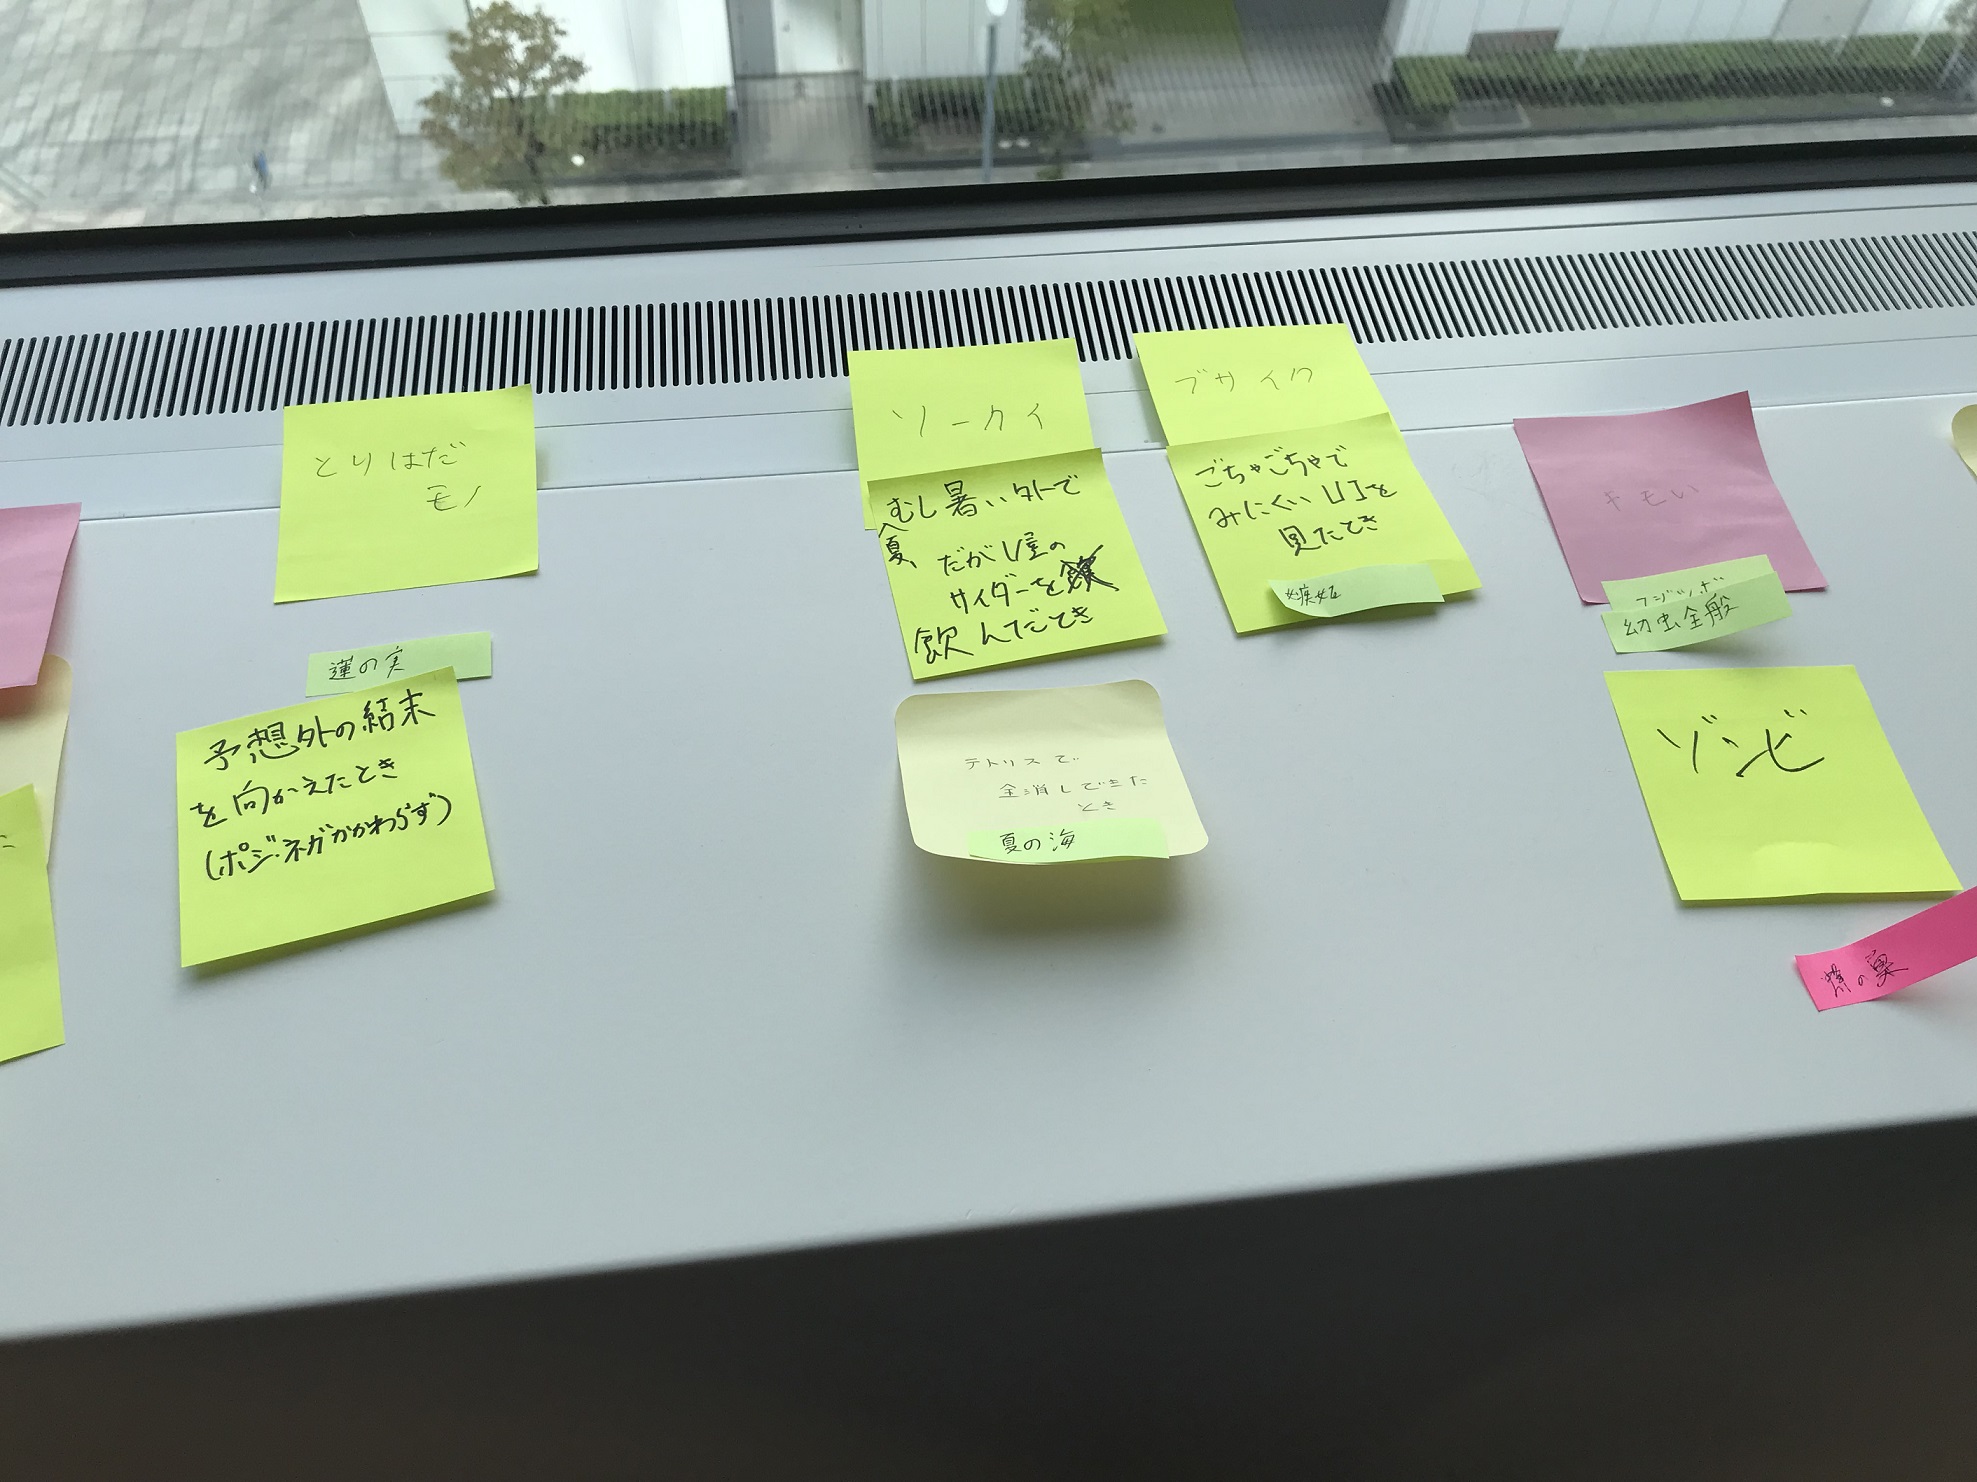 とりはだ
モノ
蓮の実
予想外の結末
を向かえたとき
(ポジ・ネガかかわらず)
ソーカイ
むし暑い外で
夏、
だがし屋の
サイダーを
飲んだとき
テトリスで
全消しできた
とき
夏の海
ブサイク
ごちゃごちゃで
みにくいUIを
見たとき
嫉妬
キモい
フジツボ
幼虫全般
ゾンビ
の実